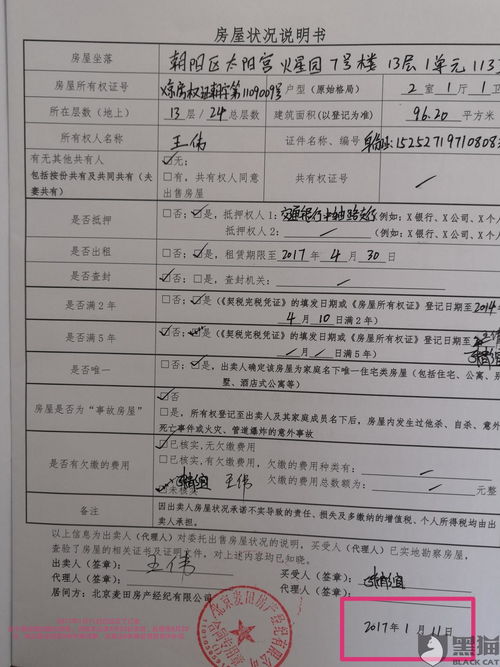 房屋状况说明书
房屋坐落 朝阳区太阳宫火星园7号楼13层1单元113
房屋所有权证号 X京房权证朝字第1109009号 户型（原始格局） 2室1厅1卫
所在层数（地上） 13层/24总层数 建筑面积（以登记为准） 96.20 平方米
所有权人名称 王伟 证件名称、编号 身份证:15252719710808
有无其他共有人
包括按份共有及共同共有（夫妻共有）
☑无；
□有，共有权人同意出售房屋
共有权证号 /
是否抵押 □否；☑是，抵押权人1： （例如：X银行、X公司、X个人
抵押权人2： / （例如：X银行、X公司、X个人
是否出租 □否；☑是，租赁期限至 2017 年 4 月 30 日
是否查封 ☑否；□是，查封机关： /
是否满2年 □否；☑是（《契税完税凭证》的填发日期或《房屋所有权证》登记日期至 2014
4 月 10 日满2年）
是否满5年 ☑否；□是（《契税完税凭证》的填发日期或《房屋所有权证》登记日期至
/ 月 / 日满5年）
是否唯一 □否；☑是，出卖人确定该房屋为家庭名下唯一住宅类房屋（包括住宅、公寓、别
墅、酒店式公寓等）
房屋是否为“事故房屋” ☑否
□是，所有权登记至出卖人及其家庭成员名下后，房屋内发生过他杀、自杀、意外
死亡事件或火灾、管道爆炸的意外事故
是否有欠缴的费用 ☑已核实,无欠缴费用
□已核实,有欠缴费用，欠缴的费用种类有： /
王伟 欠缴的费用总数额为： / 元整
未核实
备注 因出卖人房屋状况承诺不实导致的责任、损失及多缴纳的增值税、个人所得税均由出
卖人承担。
以上信息为出卖人（代理人）对委托出售房屋状况的说明，买受人（代理人）已实地勘察房屋，
查验了房屋的相关证书及证明文件，对上述内容均已知晓。
出卖人（签章）： 王伟 买受人（签章）：
代理人（签章）： 代理人（签章）：
居间方：北京麦田房产经纪有限公司
2017年1月11日
黑猫
BLACK CAT